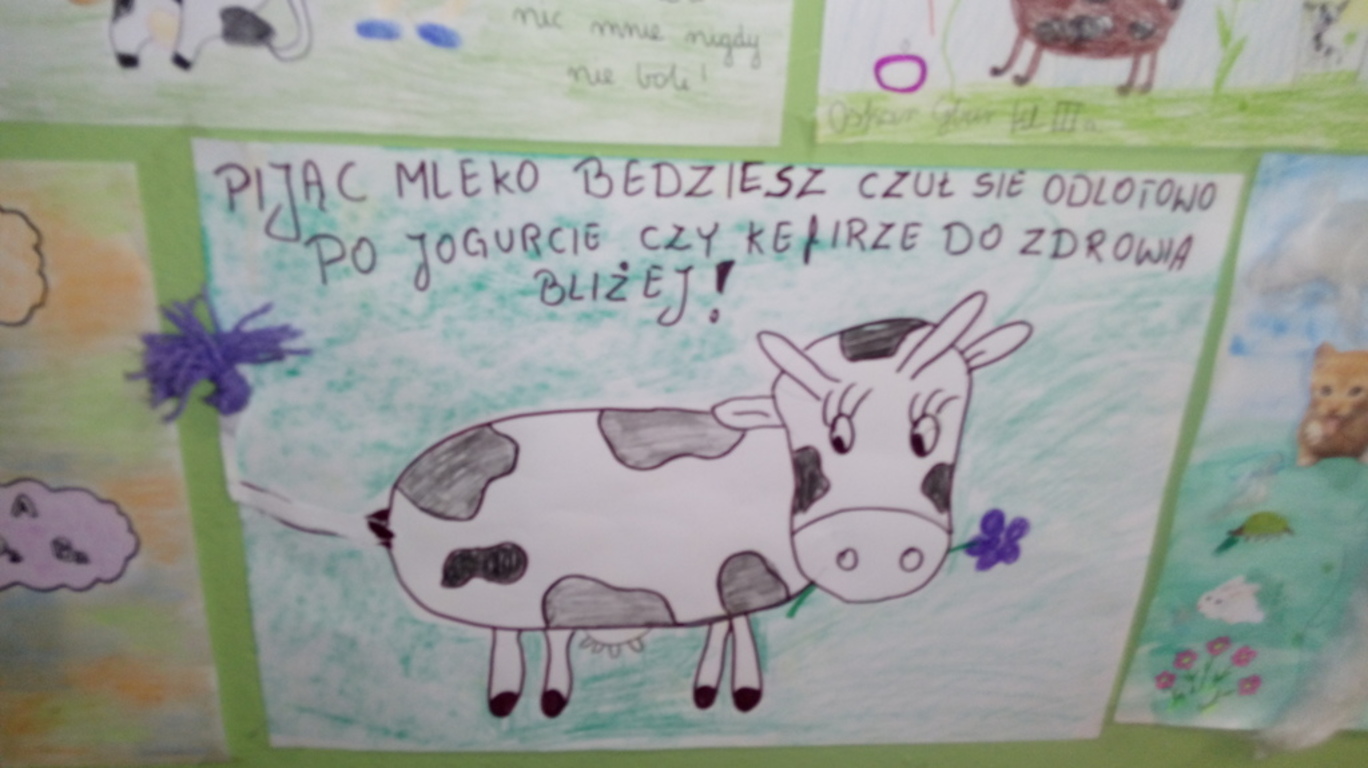 nic mnie nigdy
nie boli!
kl IIIa
PIJĄC MLEKO BEDZIESZ CZUŁ SIE ODLOTOWO
PO JOGURCIE CZY KEFIRZE DO ZDROWIA
BLIŻEJ!